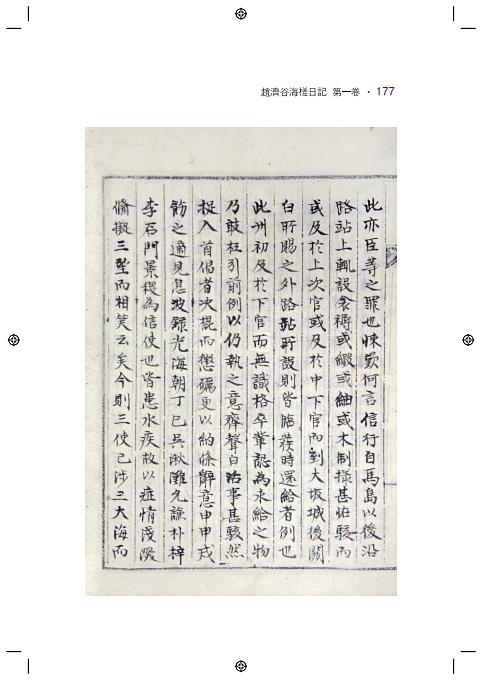 趙濟谷海槎日記 第一卷 · 177
此亦臣等之罪也悚歎何言信行自馬島以後沿
路站上輒設衾褥或緞或紬或木制㨾甚壯駭而
或及於上次官或及於中下官而到大坂城後關
白所賜之外路站所設則皆臨發時還給者例也
此州初及於下官而無識格卒輩認為永給之物
乃敢枉引前例以仍執之意齊聲白活事甚駭然
捉入首倡者决棍而懲礪更以約條辭意申申戒
飭之適見息波錄光海朝丁巳吳楸灘允謙朴梓
李石門景稷為信使也皆患水疾故以症情淺深
偹擬三聖而相笑云矣今則三使已涉三大海而